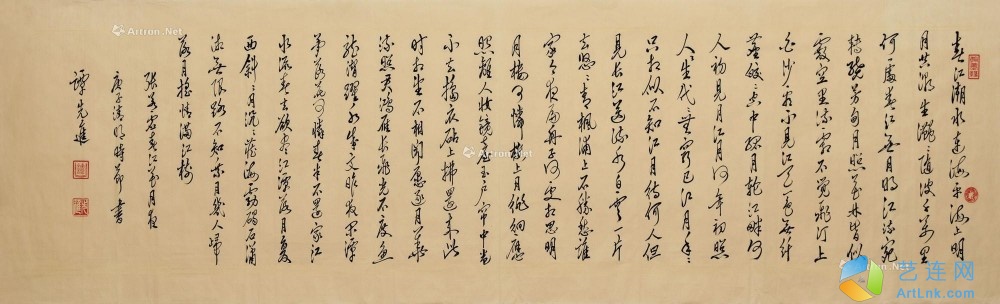 春江潮水連海平海上明
月共潮生灩〻随波千万里
何處春江無月明江流宛
轉繞芳甸月照花林皆似
霰空里流霜不觉飛汀上
白沙看不見江天一色無纤
塵皎〻空中孤月輪江畔何
人初見月江月何年初照
人〻生代〻無窮已江月年〻
只相似不知江月待何人但
見长江送流水白雲一片
去悠〻青楓浦上不勝愁誰
家今夜扁舟子何處相思明
月樓可憐樓上月徘徊應
照離人妝镜台玉户帘中卷
不去擣衣砧上拂還来此
時相望不相聞愿逐月華
流照君鴻雁长飛光不度魚
龍潜躍水成文昨夜闲潭
夢落花可憐春半不還家江
水流春去欲尽江潭落月复
西斜〻月沉〻藏海霧碣石瀟
湘無限路不知乘月幾人歸
落月摇情滿江樹
張若虚春江花月夜
庚子清明時節 書
譚先進
Artron.Net
Artron.Net
Artron.Net
艺连网
ArtLnk.com